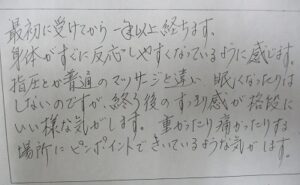 最初に受けてから一年以上経ちます。
身体がすぐに反応しやすくなっているように感じます。
指圧とか普通のマッサージと違い 眠くなったりは
しないのですが、終了後のすっきり感が格段に
いい様な気がします。 重かったり痛かったりする
場所にピンポイントできいているような気がします。